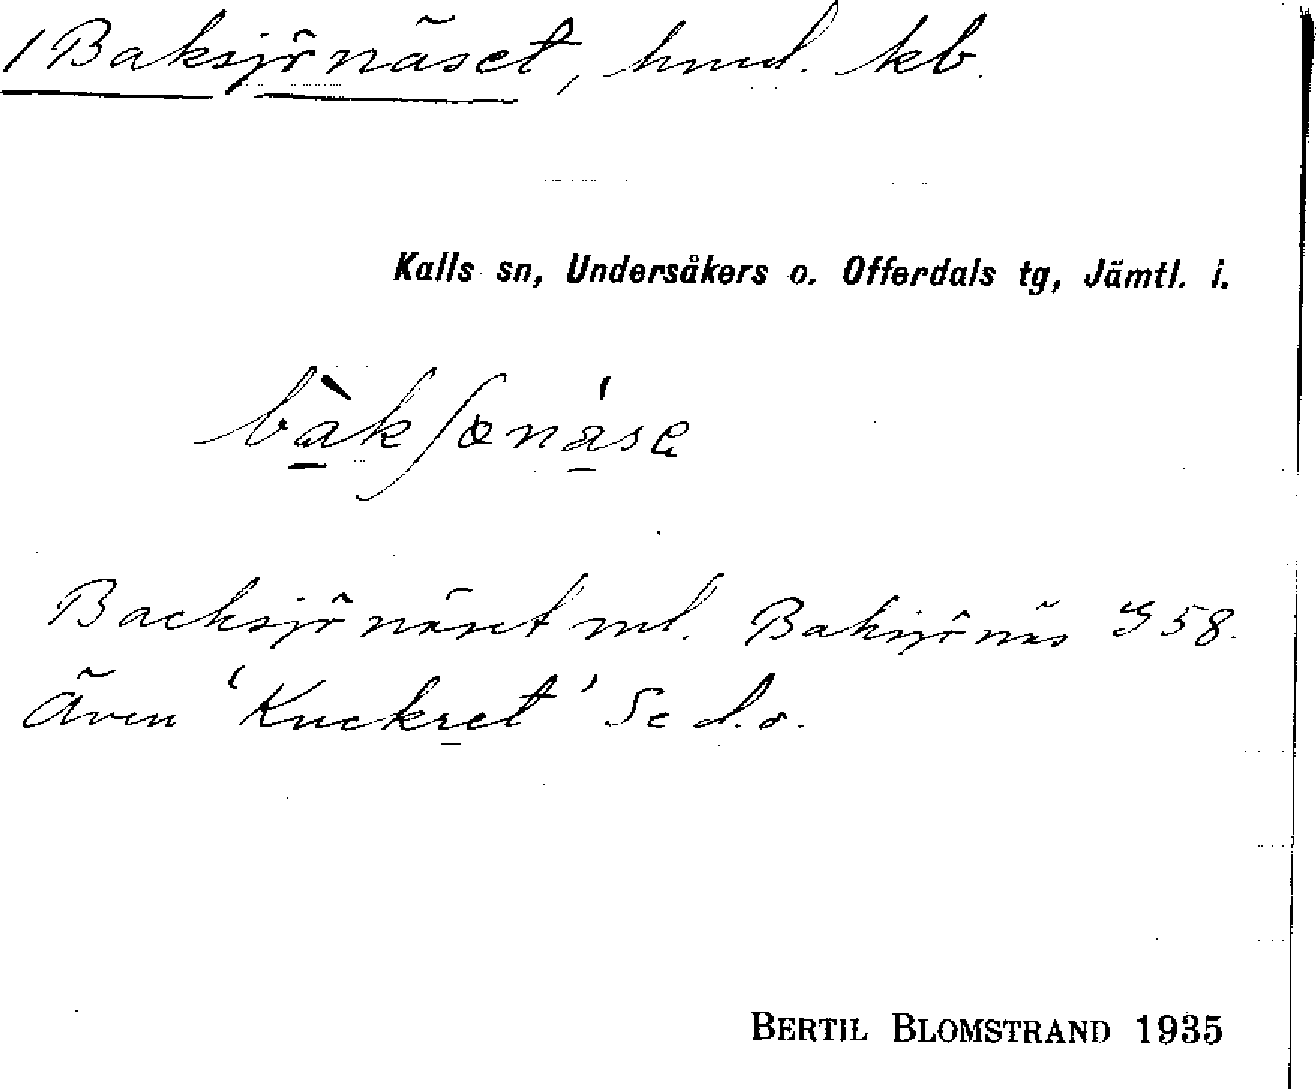 / Baksjönäset, hmd. kb.
Kalls sn, Undersåkers o. Offerdals tg, Jämtl. l.
bàkʃɶnása
Backsjönäset ml. Baksjönäs G 58.
Även 'Kneckret' Se d.o.
BERTIL BLOMSTRAND 1935